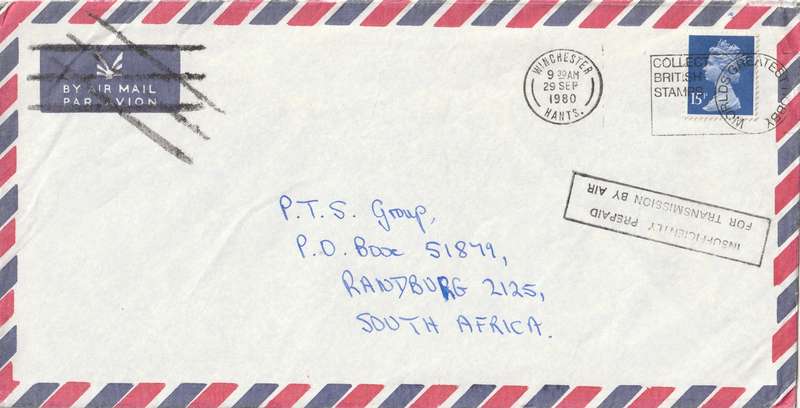 BY AIR MAIL
PAR AVION
WINCHESTER
9 30AM
29 SEP
1980
HANTS.
COLLECT
BRITISH
STAMPS
WORLDS GREATEST HOBBY
15P
INSUFFICIENTLY PREPAID
FOR TRANSMISSION BY AIR
P.T.S. Group,
P.O. Box 51879,
RANDBURG 2125,
SOUTH AFRICA.